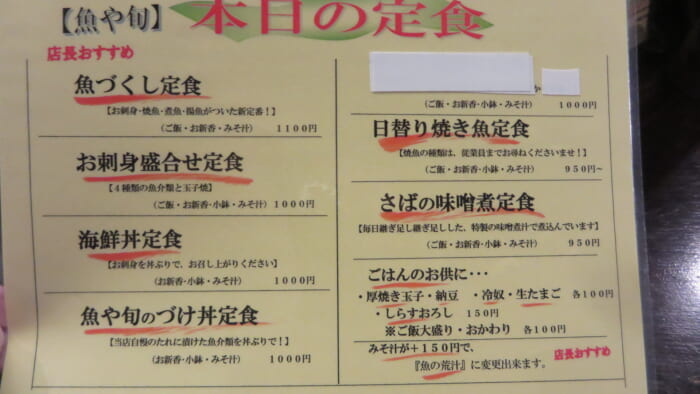 【魚や旬】
本日の定食
店長おすすめ
魚づくし定食
【お刺身・焼魚・煮魚・揚魚がついた新定番！】
（ご飯・お新香・小鉢・みそ汁） １１００円
お刺身盛合せ定食
【４種類の魚介類と玉子焼】
（ご飯・お新香・小鉢・みそ汁） １０００円
海鮮丼定食
【お刺身を丼ぶりで、お召し上がりください】
（お新香・小鉢・みそ汁） １０００円
魚や旬のづけ丼定食
【当店自慢のたれに漬けた魚介類を丼ぶりで！】
（お新香・小鉢・みそ汁） １０００円
（ご飯・お新香・小鉢・みそ汁） １０００円
日替り焼き魚定食
【焼魚の種類は、従業員までお尋ねくださいませ！】
（ご飯・お新香・小鉢・みそ汁） ９５０円～
さばの味噌煮定食
【毎日継ぎ足し継ぎ足しした、特製の味噌煮汁で煮込んでいます】
（ご飯・お新香・小鉢・みそ汁） ９５０円
ごはんのお供に・・・
・厚焼き玉子・納豆 ・冷奴・生たまご 各１００円
・しらすおろし １５０円
※ご飯大盛り・おかわり 各１００円
みそ汁が＋１５０円で、
『魚の荒汁』に変更出来ます。
店長おすすめ